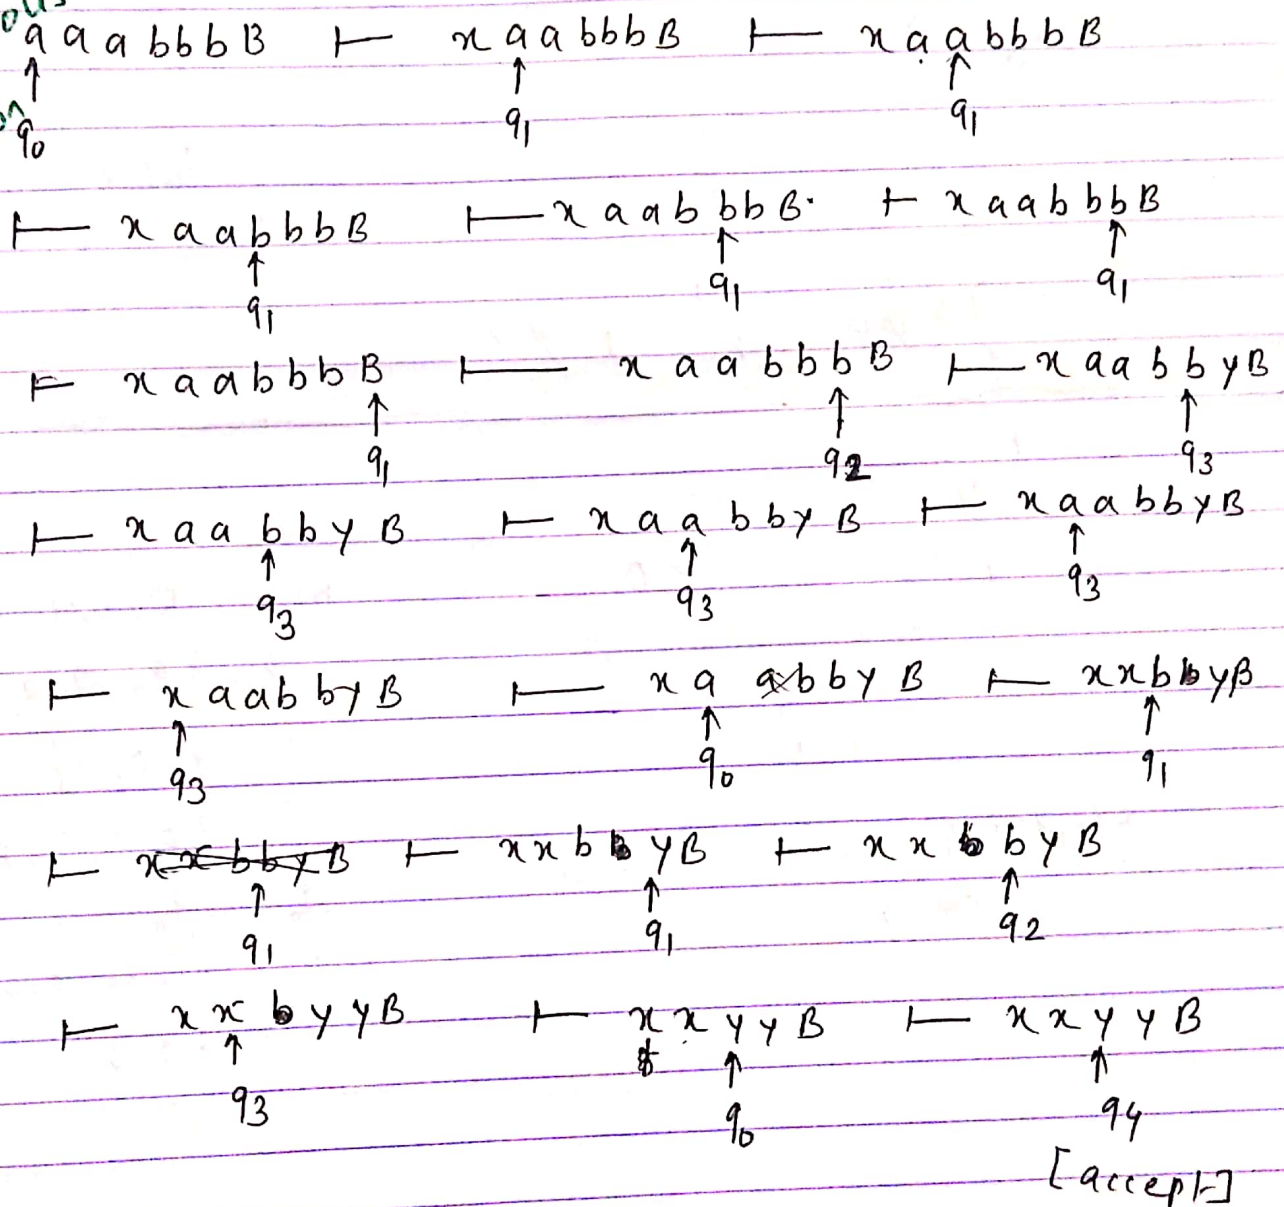 a a a b b b B ⊢ x a a b b b B ⊢ x a a b b b B
↑ ↑ ↑
q0 q1 q1
⊢ x a a b b b B ⊢ x a a b b b B. ⊢ x a a b b b B
↑ ↑ ↑
q1 q1 q1
⊢ x a a b b b B ⊢ x a a b b b B ⊢ x a a b b y B
↑ ↑ ↑
q1 q2 q3
⊢ x a a b b y B ⊢ x a a b b y B ⊢ x a a b b y B
↑ ↑ ↑
q3 q3 q3
⊢ x a a b b y B ⊢ x a a b b y B ⊢ x x b b y B
↑ ↑ ↑
q3 q0 q1
⊢ x x b b y B ⊢ x x b b y B ⊢ x x b b y B
↑ ↑ ↑
q1 q1 q2
⊢ x x b y y B ⊢ x x y y B ⊢ x x y y B
↑ ↑ ↑
q3 q0 q4
[accept]